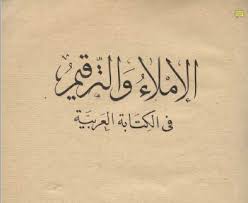 الإملاء والترقيم
في الكتابة العربية